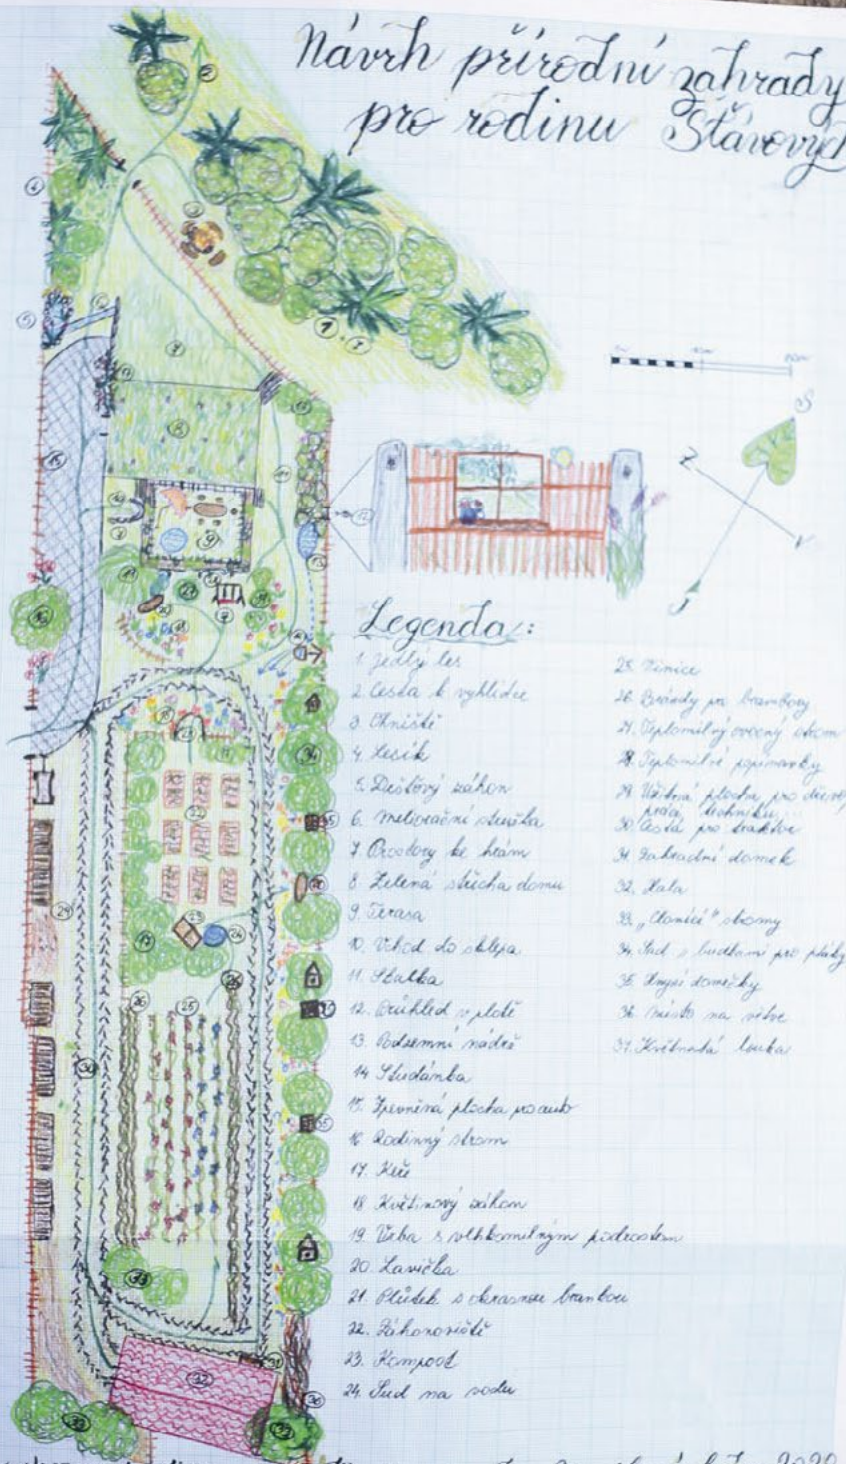 Návrh přírodní zahrady
pro rodinu Šťávových
Legenda:
1. Jedlý les
2. Cesta k vyhlídce
3. Ohniště
4. Lesík
5. Dešťový záhon
6. meliorační stružka
7. Prostory ke hrám
8. Zelená střecha domu
9. Terasa
10. Vchod do sklepa
11. Skalka
12. Průhled v plotě
13. Podzemní nádrž
14. Studánka
15. Zpevněná plocha pro auto
16. Rodinný strom
17. Keře
18. Květinový záhon
19. Vrba s vlhkomilným podrostem
20. Lavička
21. Plůtek s okrasnou brankou
22. Záhonoviště
23. Kompost
24. Sud na vodu
25. Vinice
26. Brázdy pro brambory
27. Teplomilný ovocný strom
28. Teplomilné popínavky
29. Užitná plocha pro dřevo,
30. Cesta pro traktor
31. Zahradní domek
32. Hala
33. „Clonící" stromy
34. Sad s budkami pro ptáky
35. Hmyzí domečky
36. místo na větve
37. Květnatá louka
2020